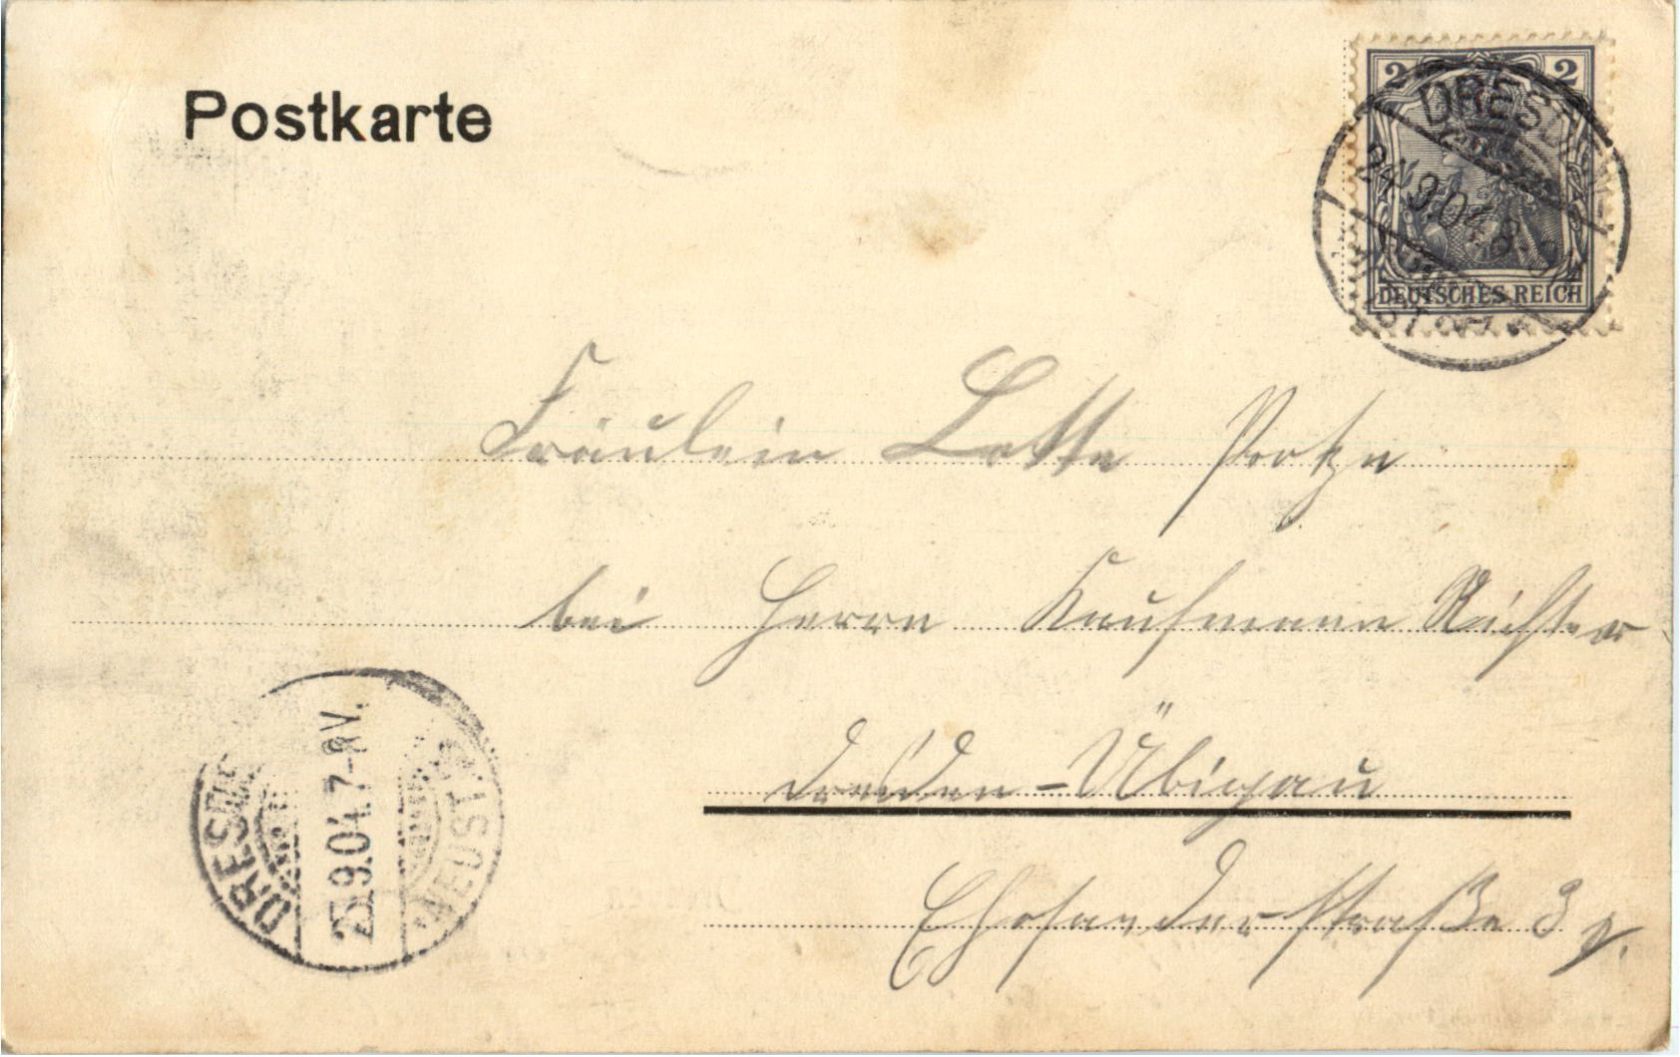 Postkarte
2 2
DRESDEN
24.9.04.8-9N
DEUTSCHES REICH
Fräulein Lotte Protze
bei Herrn Kaufmann Richter
Dresden-Übigau
straße 3
DRESDEN
25.9.04.7-8V.
NEUST.